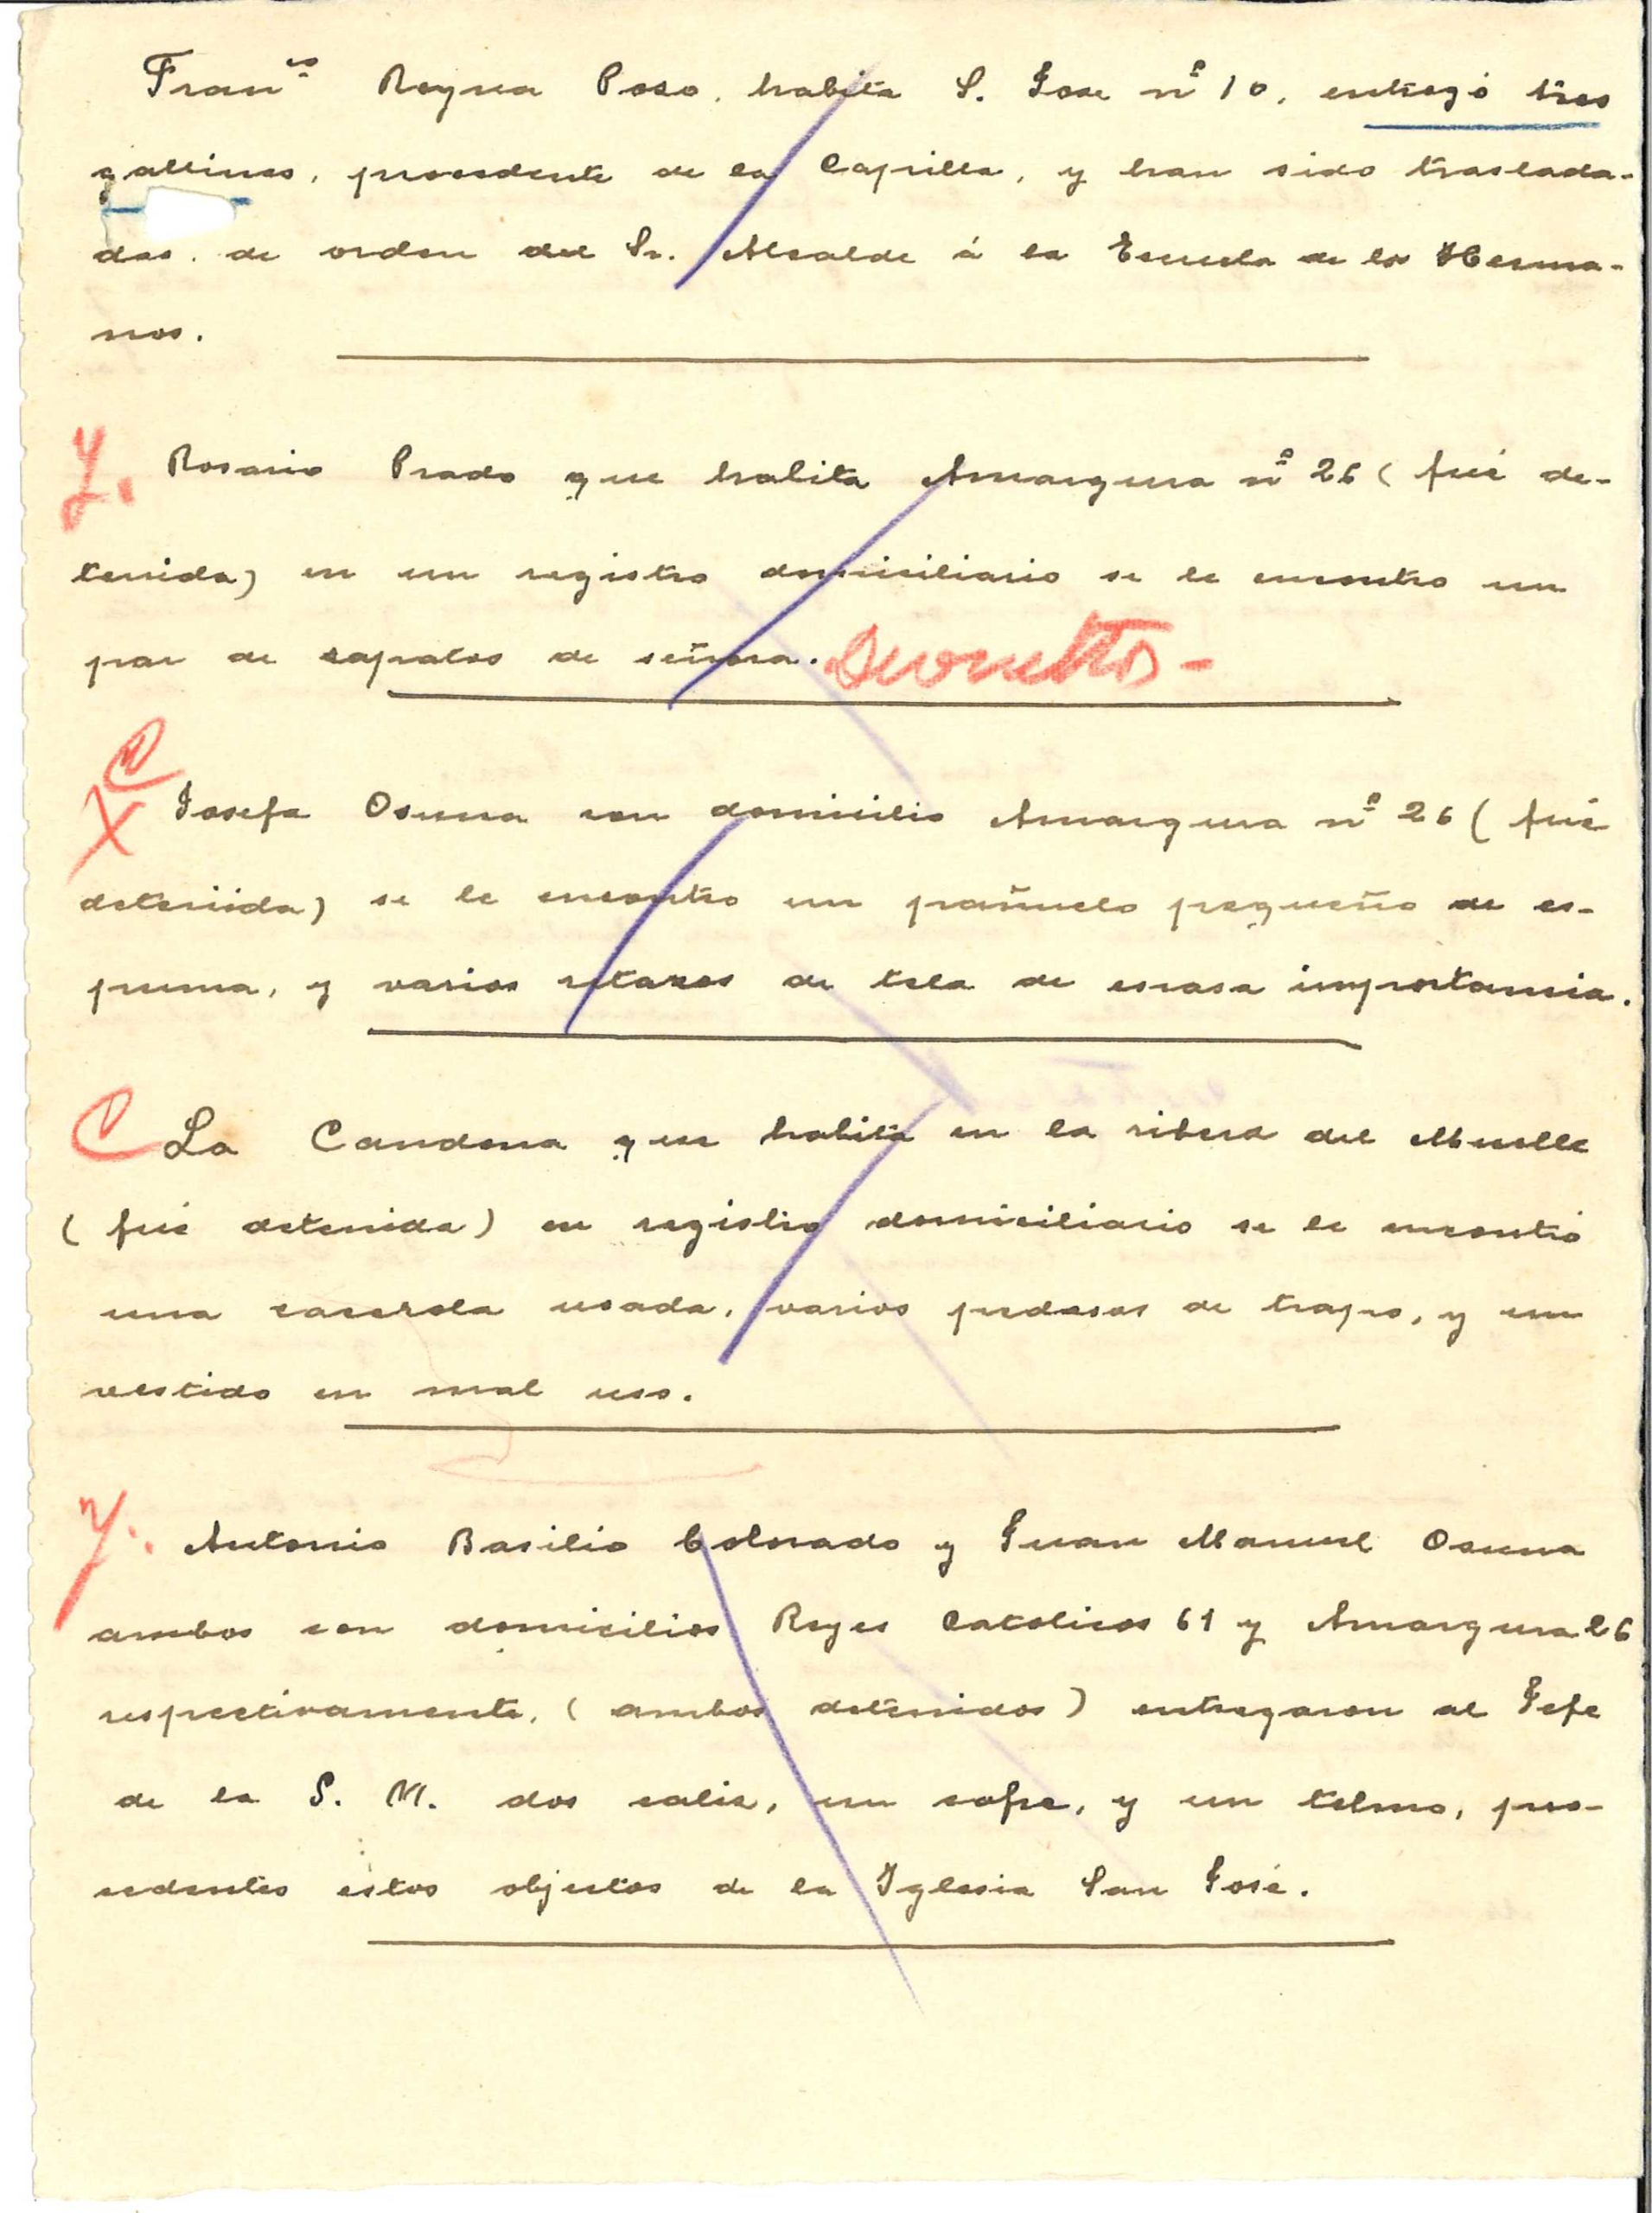 Franco Reyna Poso, habita S. Jose nº 10, entregó tres
gallinas, procedente de la Capilla, y han sido traslada-
das. de orden del Sr. Alcalde á la Escuela de los Herma-
nos.
Y. Rosario Prado que habita Amargura nº 26 ( fué de-
tenida) en un registro domiciliario se le encontro un
par de sapatos de señora.
C
X Josefa Osuna con domicilio Amargura nº 26 ( fué
deteniida) se le encontro un pañuelo pequeño de es-
puma, y varios retazos de tela de escasa importancia.
C La Candona que habita en la ribera del Muelle
( fué detenida) en registro domiciliario se le encontró
una cacerola usada, varios pedasos de trapo, y un
vestido en mal uso.
Y. Antonio Basilio Colorado y Juan Manuel Osuna
ambos con domicilios Reyes Catolicos 61 y Amargura 26
respectivamente, ( ambos detenidos ) entregaron al Jefe
de la P. M. dos caliz, un cofre, y un telmo, pro-
cedentes estos objetos de la Iglesia San José.